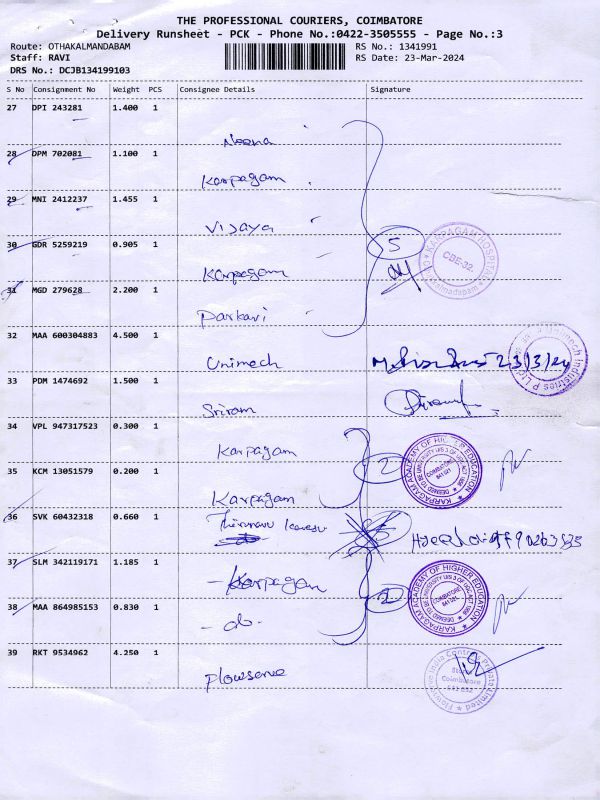 THE PROFESSIONAL COURIERS, COIMBATORE
Delivery Runsheet - PCK - Phone No.:0422-3505555 - Page No.:3
Route: OTHAKALMANDABAM
RS No.: 1341991
Staff: RAVI
RS Date: 23-Mar-2024
DRS No.: DCJB134199103
S No Consignment No Weight PCS Consignee Details Signature
27 DPI 243281 1.400 1
Neena
28 DPM 702081 1.100 1
Karpagam
29 MNI 2412237 1.455 1
Vijaya
30 GDR 5259219 0.905 1
Karpagam
5
KARPAGAM HOSPITAL
CBE-32.
31 MGD 279628 2.200 1
Parkavi
32 MAA 600304883 4.500 1
Unimech 23/3/24
Unimech Industries P Ltd
33 PDM 1474692 1.500 1
Sriram
34 VPL 947317523 0.300 1
Karpagam
2
KARPAGAM ACADEMY OF HIGHER EDUCATION
COIMBATORE
641 021
35 KCM 13051579 0.200 1
Karpagam
36 SVK 60432318 0.660 1
37 SLM 342119171 1.185 1
Karpagam
2
KARPAGAM ACADEMY OF HIGHER EDUCATION
COIMBATORE
641 021
38 MAA 864985153 0.830 1
- do -
39 RKT 9534962 4.250 1
Flowserve
Flowserve India Controls Private Limited
Coimbatore